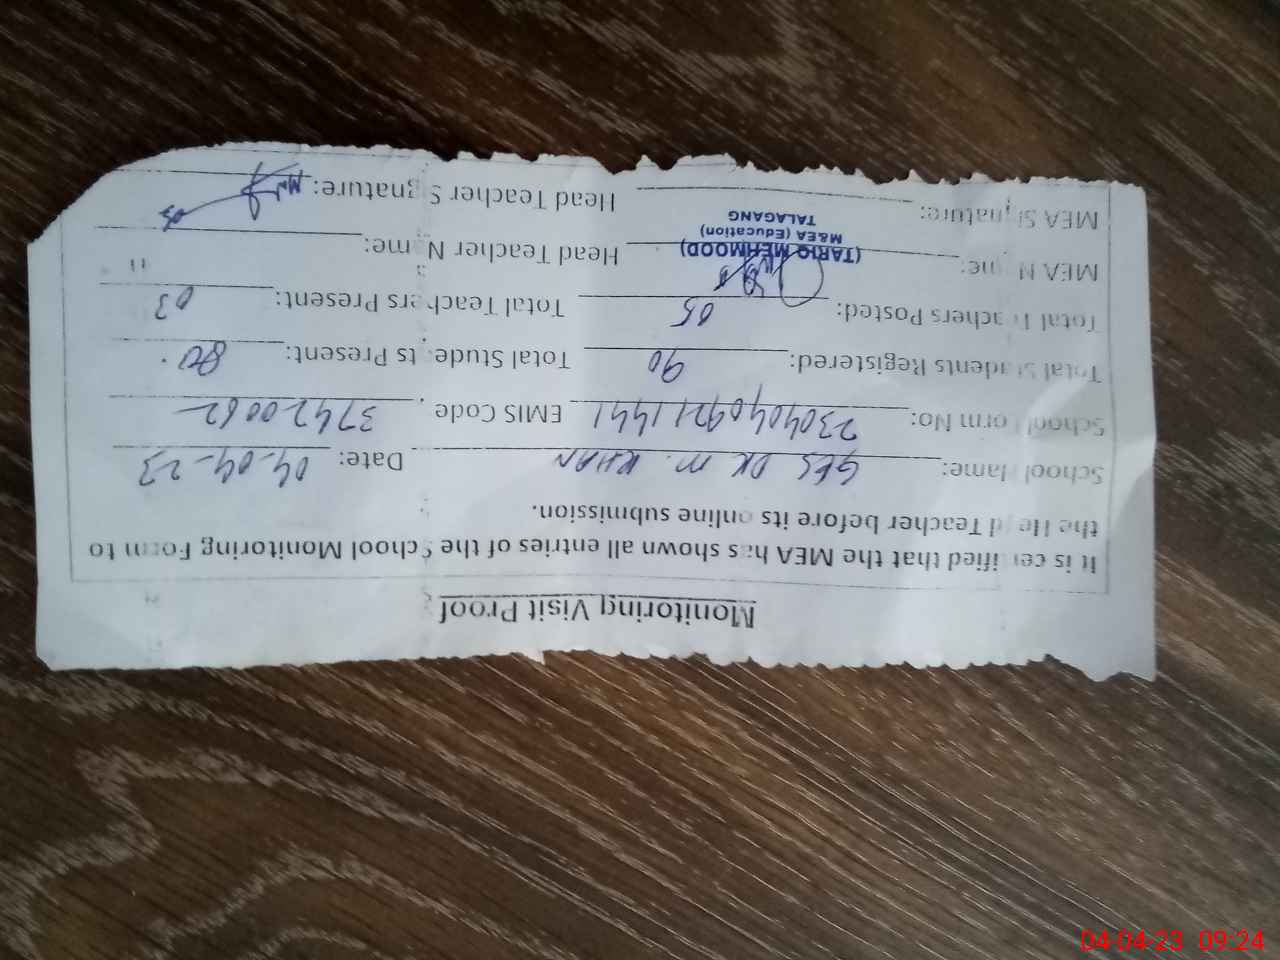 Monitoring Visit Proof
It is certified that the MEA has shown all entries of the School Monitoring Form to
the Head Teacher before its online submission.
School Name: GES DK M. KHAN Date: 04-04-23
School Form No: 2304040921441 EMIS Code 37420062
Total Students Registered: 90 Total Students Present: 80
Total Teachers Posted: 05 Total Teachers Present: 03
MEA Name: Head Teacher Name:
(TARIQ MEHMOOD)
M&EA (Education)
TALAGANG
MEA Signature: Head Teacher Signature:
04-04-23 09:24